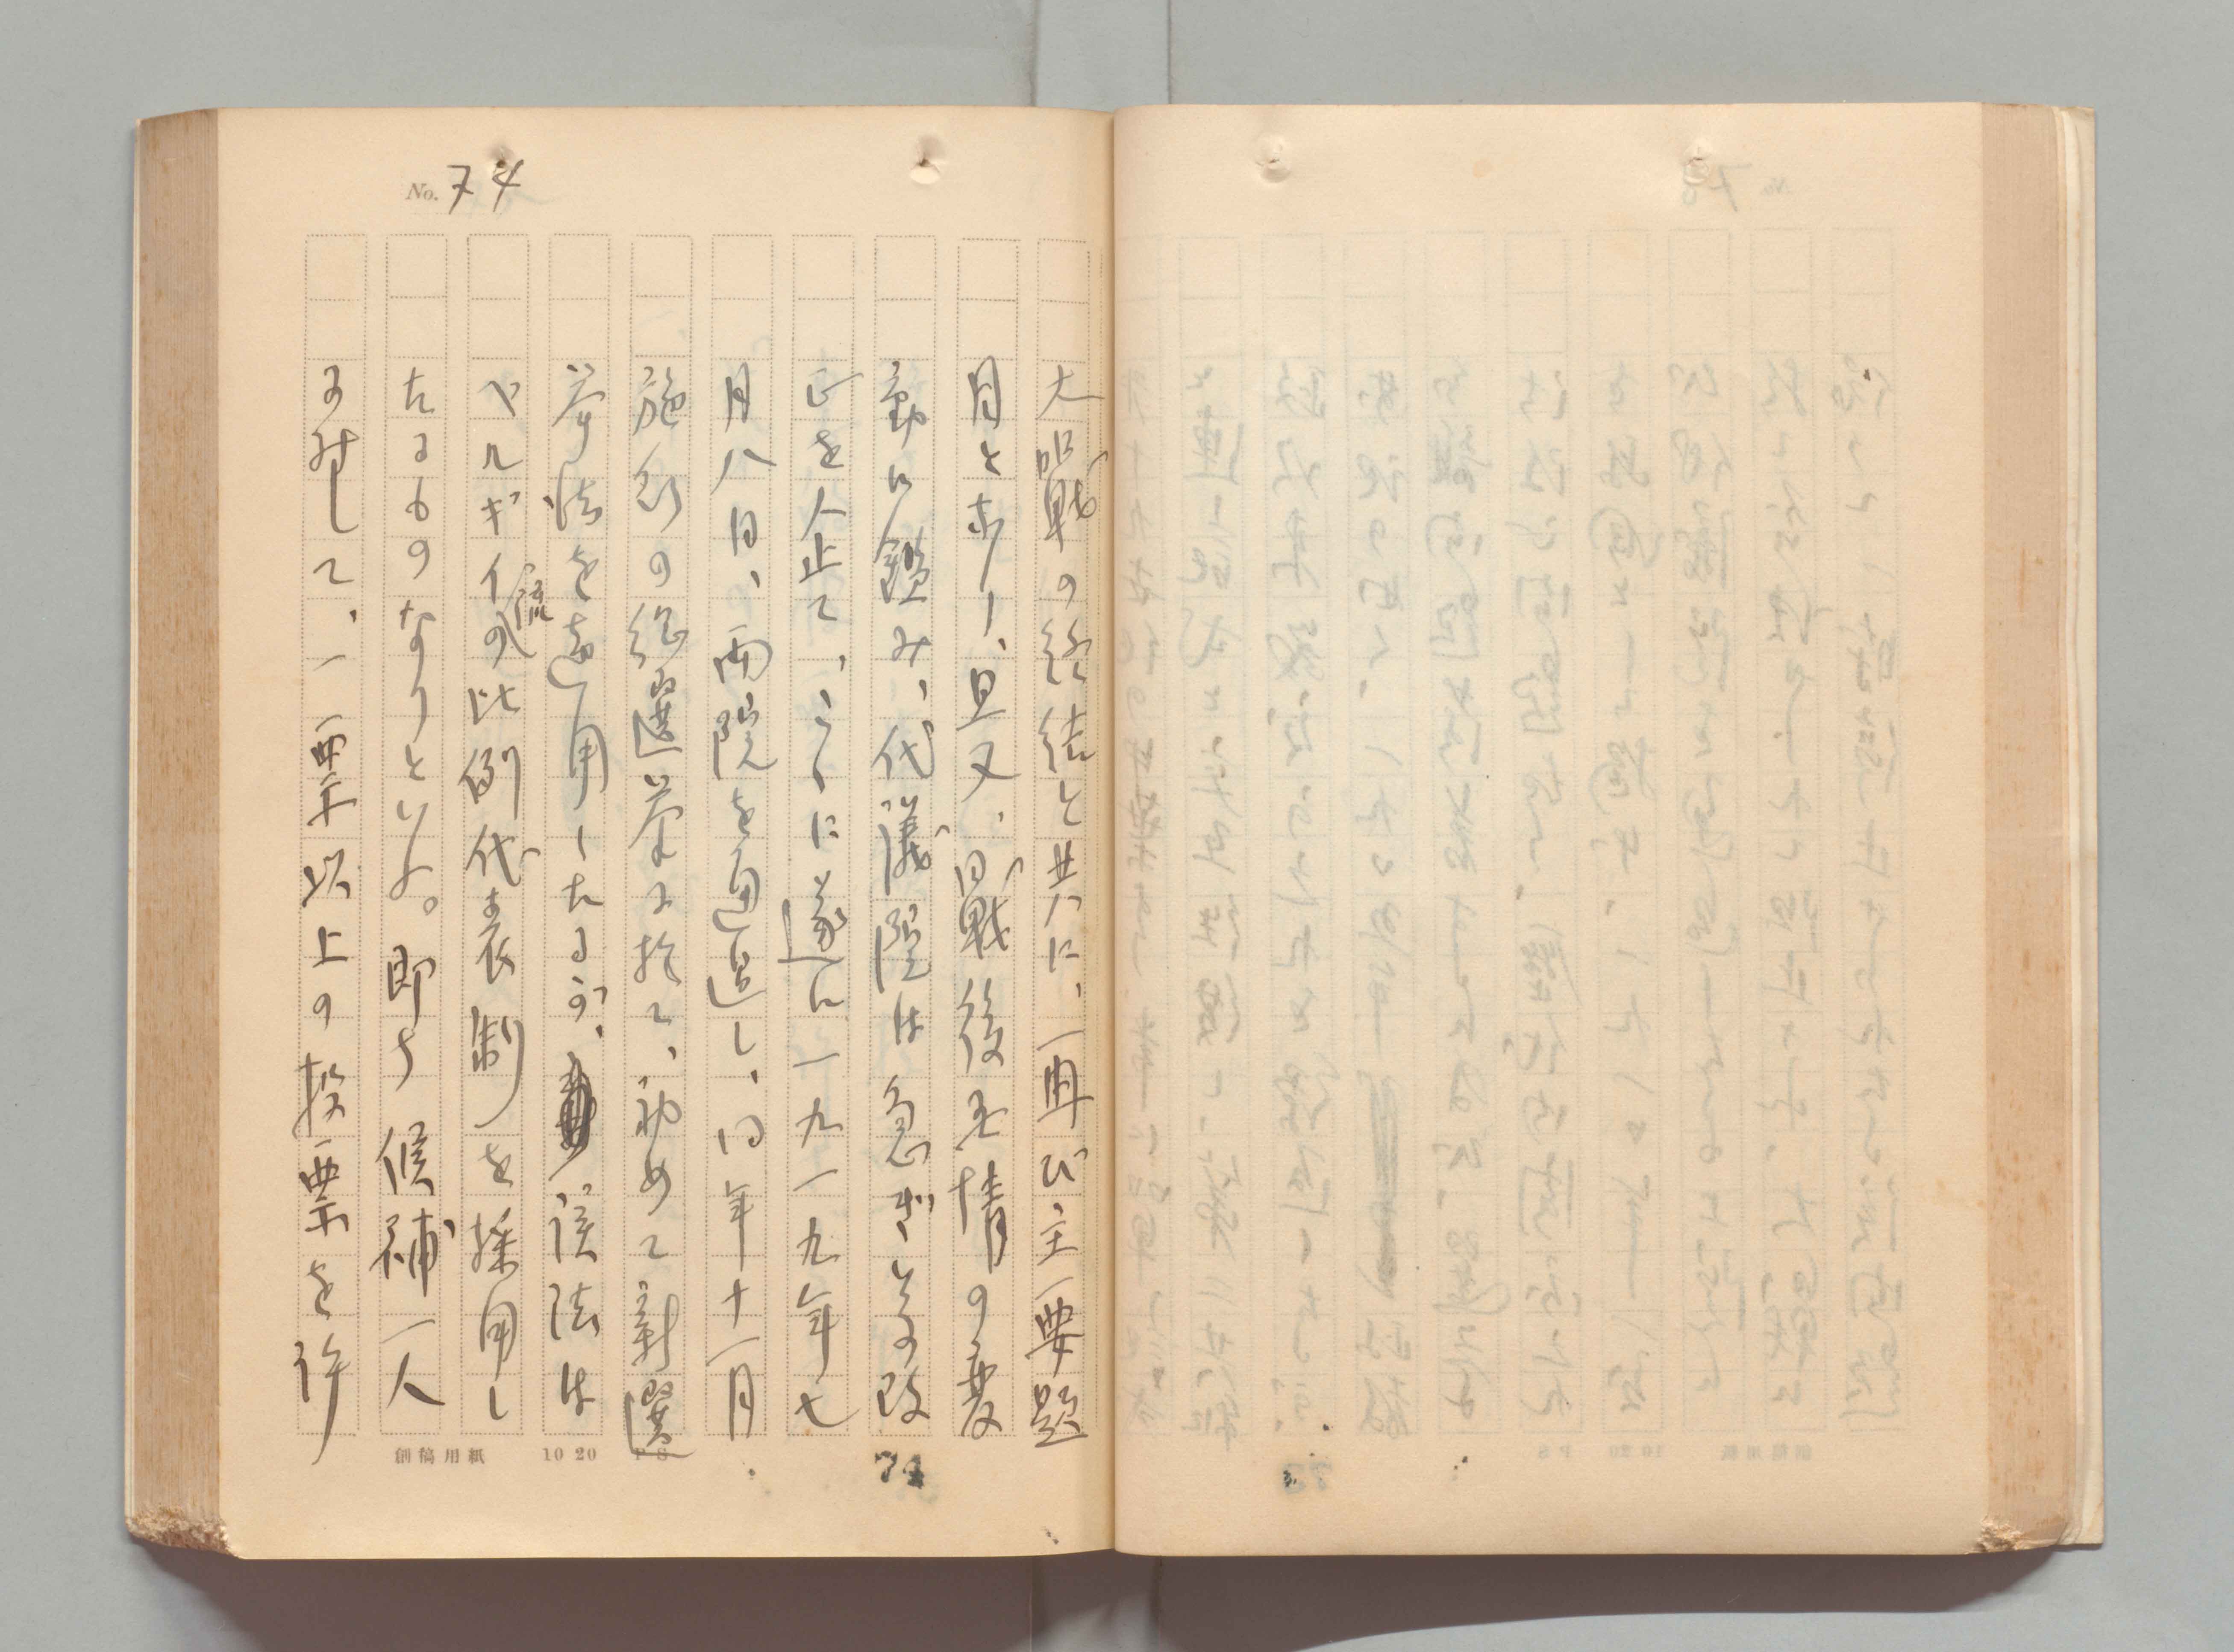 No. 74
大戦の終結と共に、再び主要題
目となり、且又、同戦後事情の変
動に鑑み、代議院は急ぎその改
正を企て、ここに遂に一九一九年七
月八日、両院を通過し、同年十一月
施行の総選挙に於て、初めて新選
挙法を適用したるが、該法は
ベルギイ流の比例代表制を採用し
たるものなりといふ。即ち候補一人
に対して、一票以上の投票を許
創稿用紙 10 20 P S
74